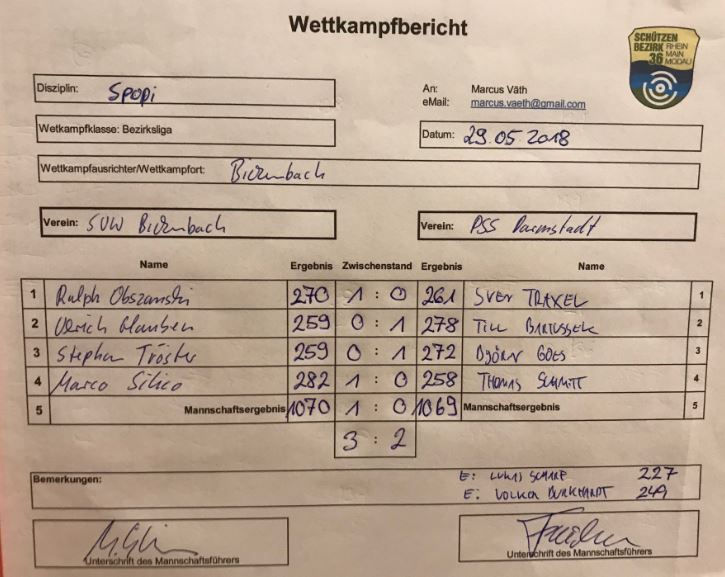 Wettkampfbericht
SCHÜTZEN
BEZIRK RHEIN
36 MAIN
MODAU
Disziplin: Spopi
An: Marcus Väth
eMail: marcus.vaeth@gmail.com
Wetkampfklasse: Bezirksliga
Datum: 29.05 2018
Wettkampfausrichter/Wettkampfort: Bickenbach
Verein: SVW Bickenbach
Verein: PSS Darmstadt
Name Ergebnis Zwischenstand Ergebnis Name
1 Ralph 270 1 : 0 261 SVEN TRAXEL 1
2 Ulrich 259 0 : 1 278 TILL 2
3 Stephan Tröster 259 0 : 1 272 BJÖRN GOES 3
4 Marco Silico 282 1 : 0 258 THOMAS SCHMITT 4
5 Mannschaftsergebnis 1070 1 : 0 1069 Mannschaftsergebnis 5
3 : 2
Bemerkungen:
E: LUKAS SCHARF 227
E: VOLKER BURKHARDT 249
Unterschrift des Mannschaftsführers
Unterschrift des Mannschaftsführers